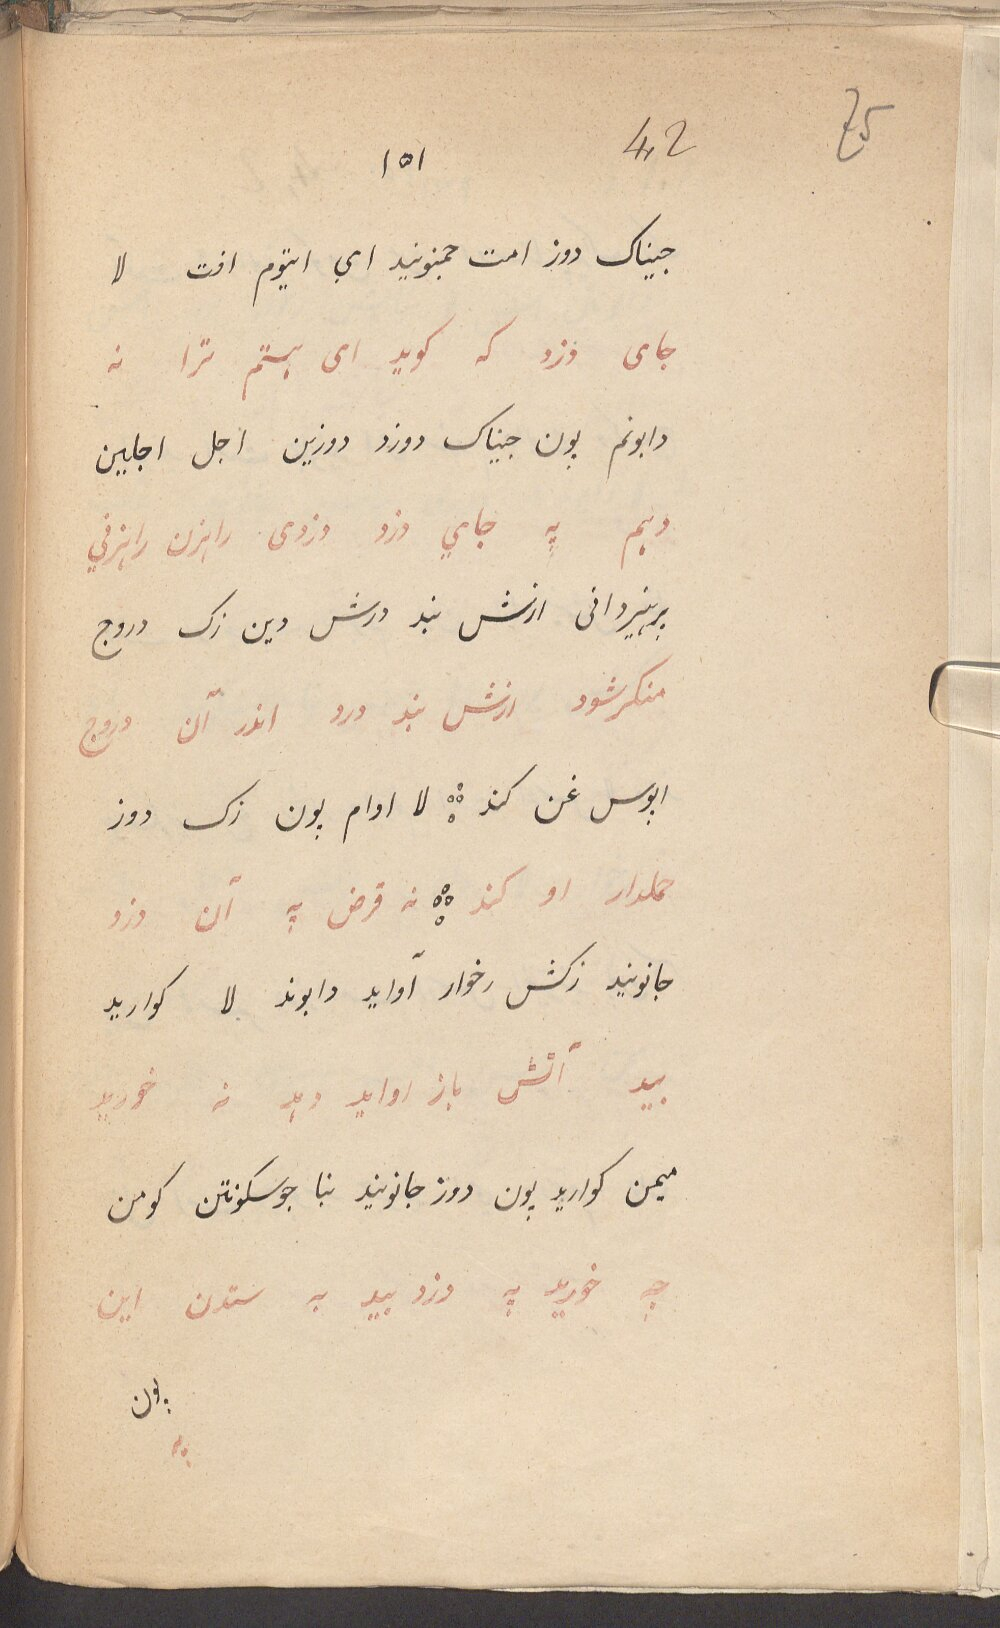 75
42
۱۵۱
جیناک دوز امت جمنونید ای ایتوم افت لا
جای دزد که کوید ای هستم ترا نه
دابونم پون جیناک دوزد دوزین اجل اجلین
دهم په جاي دزد دزدی راهزن راهزني
برهنیردانی ازش بند درش دین زک دروج
منکرشود ازش بند درد اندر آن دروج
ابوس غن کند ؞ لا اوام پون زک دوز
حملدار او کند ؞ نه قرض په آن دزد
جانونید زکش رخوار آواید دابوند لا کوارید
بید آتش باز اواید دهد نه خورید
میمن کوارید پون دوز جانونید بنا جوسکونتن کومن
چه خورید په دزد بید به ستدن این
پون
په